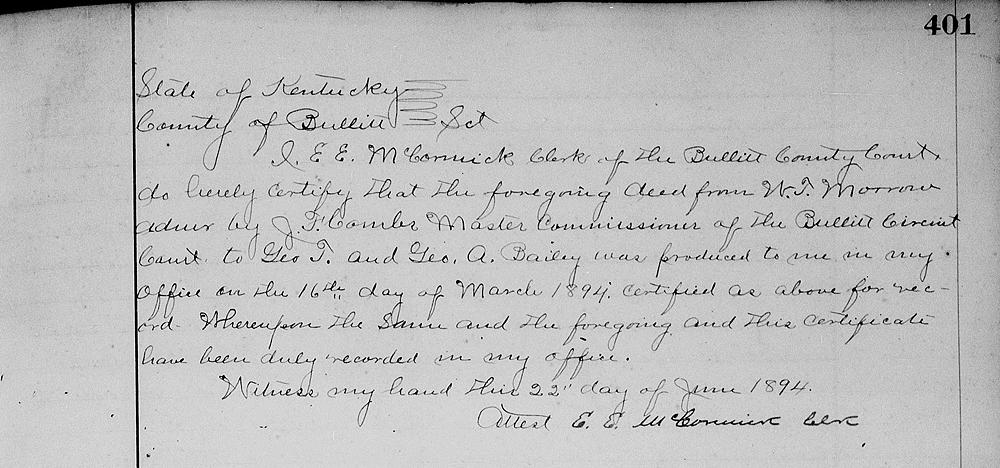 401
State of Kentucky
County of Bullitt Sct
I, E E. McCormick Clerk of the Bullitt County Court,
do hereby certify that the foregoing deed from W. T. Morrow
admr by J. F. Combs Master Commissioner of the Bullitt Circuit
Court to Geo T. and Geo. A. Bailey was produced to me in my
office on the 16th day of March 1894. certified as above for rec-
ord. Whereupon the same and the foregoing and this certificate
have been duly recorded in my office.
Witness my hand this 22" day of June 1894.
Attest E. E. McCormick Clrk